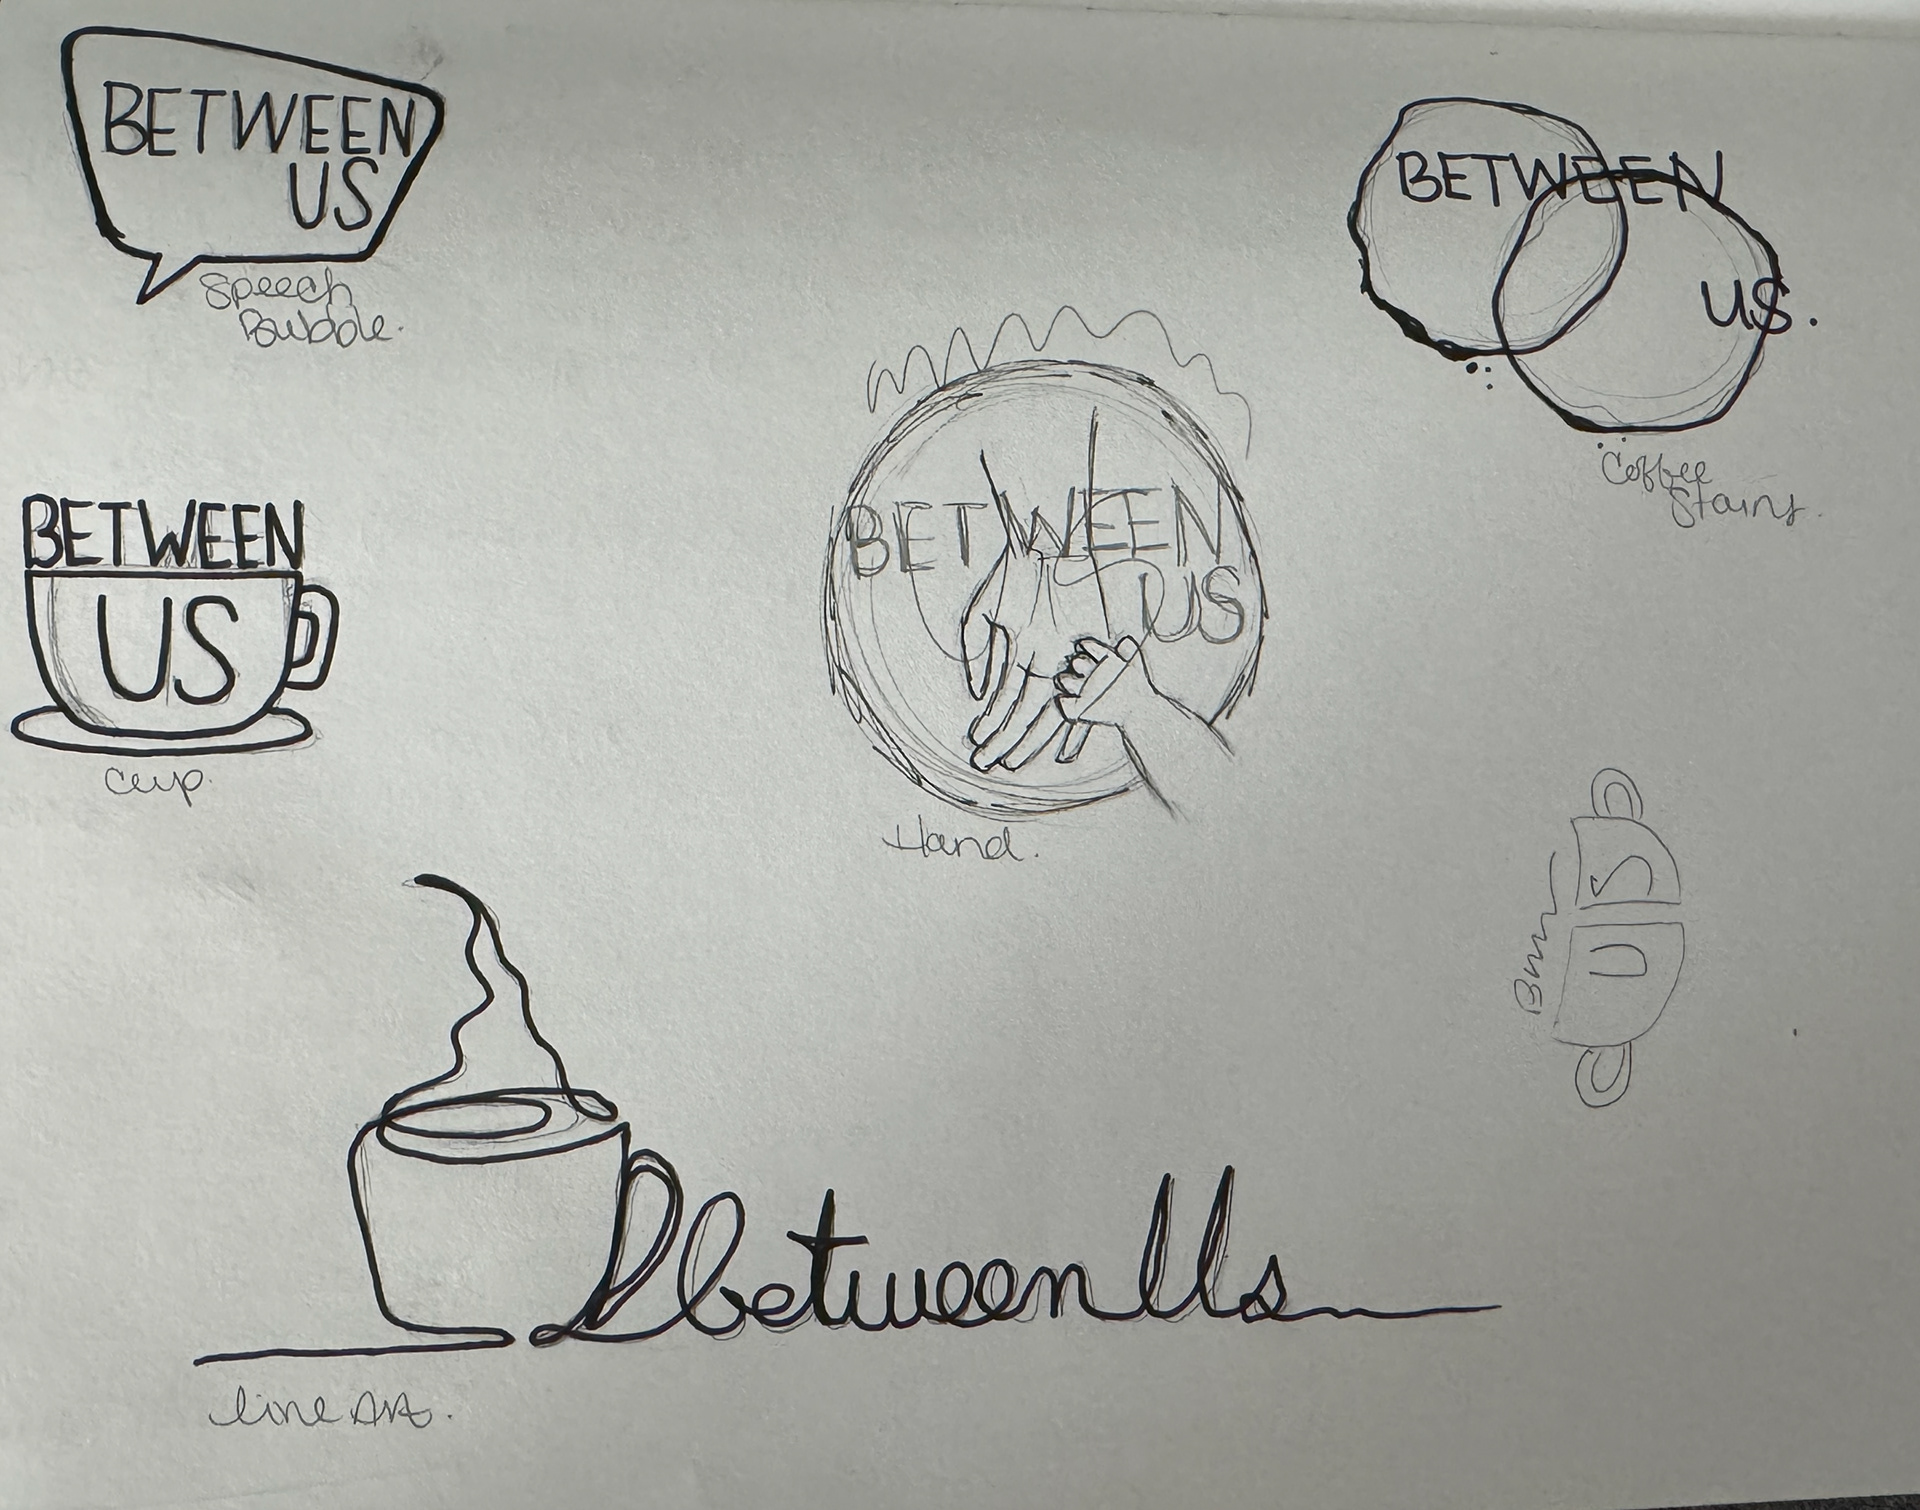 BETWEEN
US
Speech
Bubble.
BETWEEN
US.
Coffee
Stains.
BETWEEN
US
Cup.
BETWEEN
US
Hand.
US
between Us
line Art.